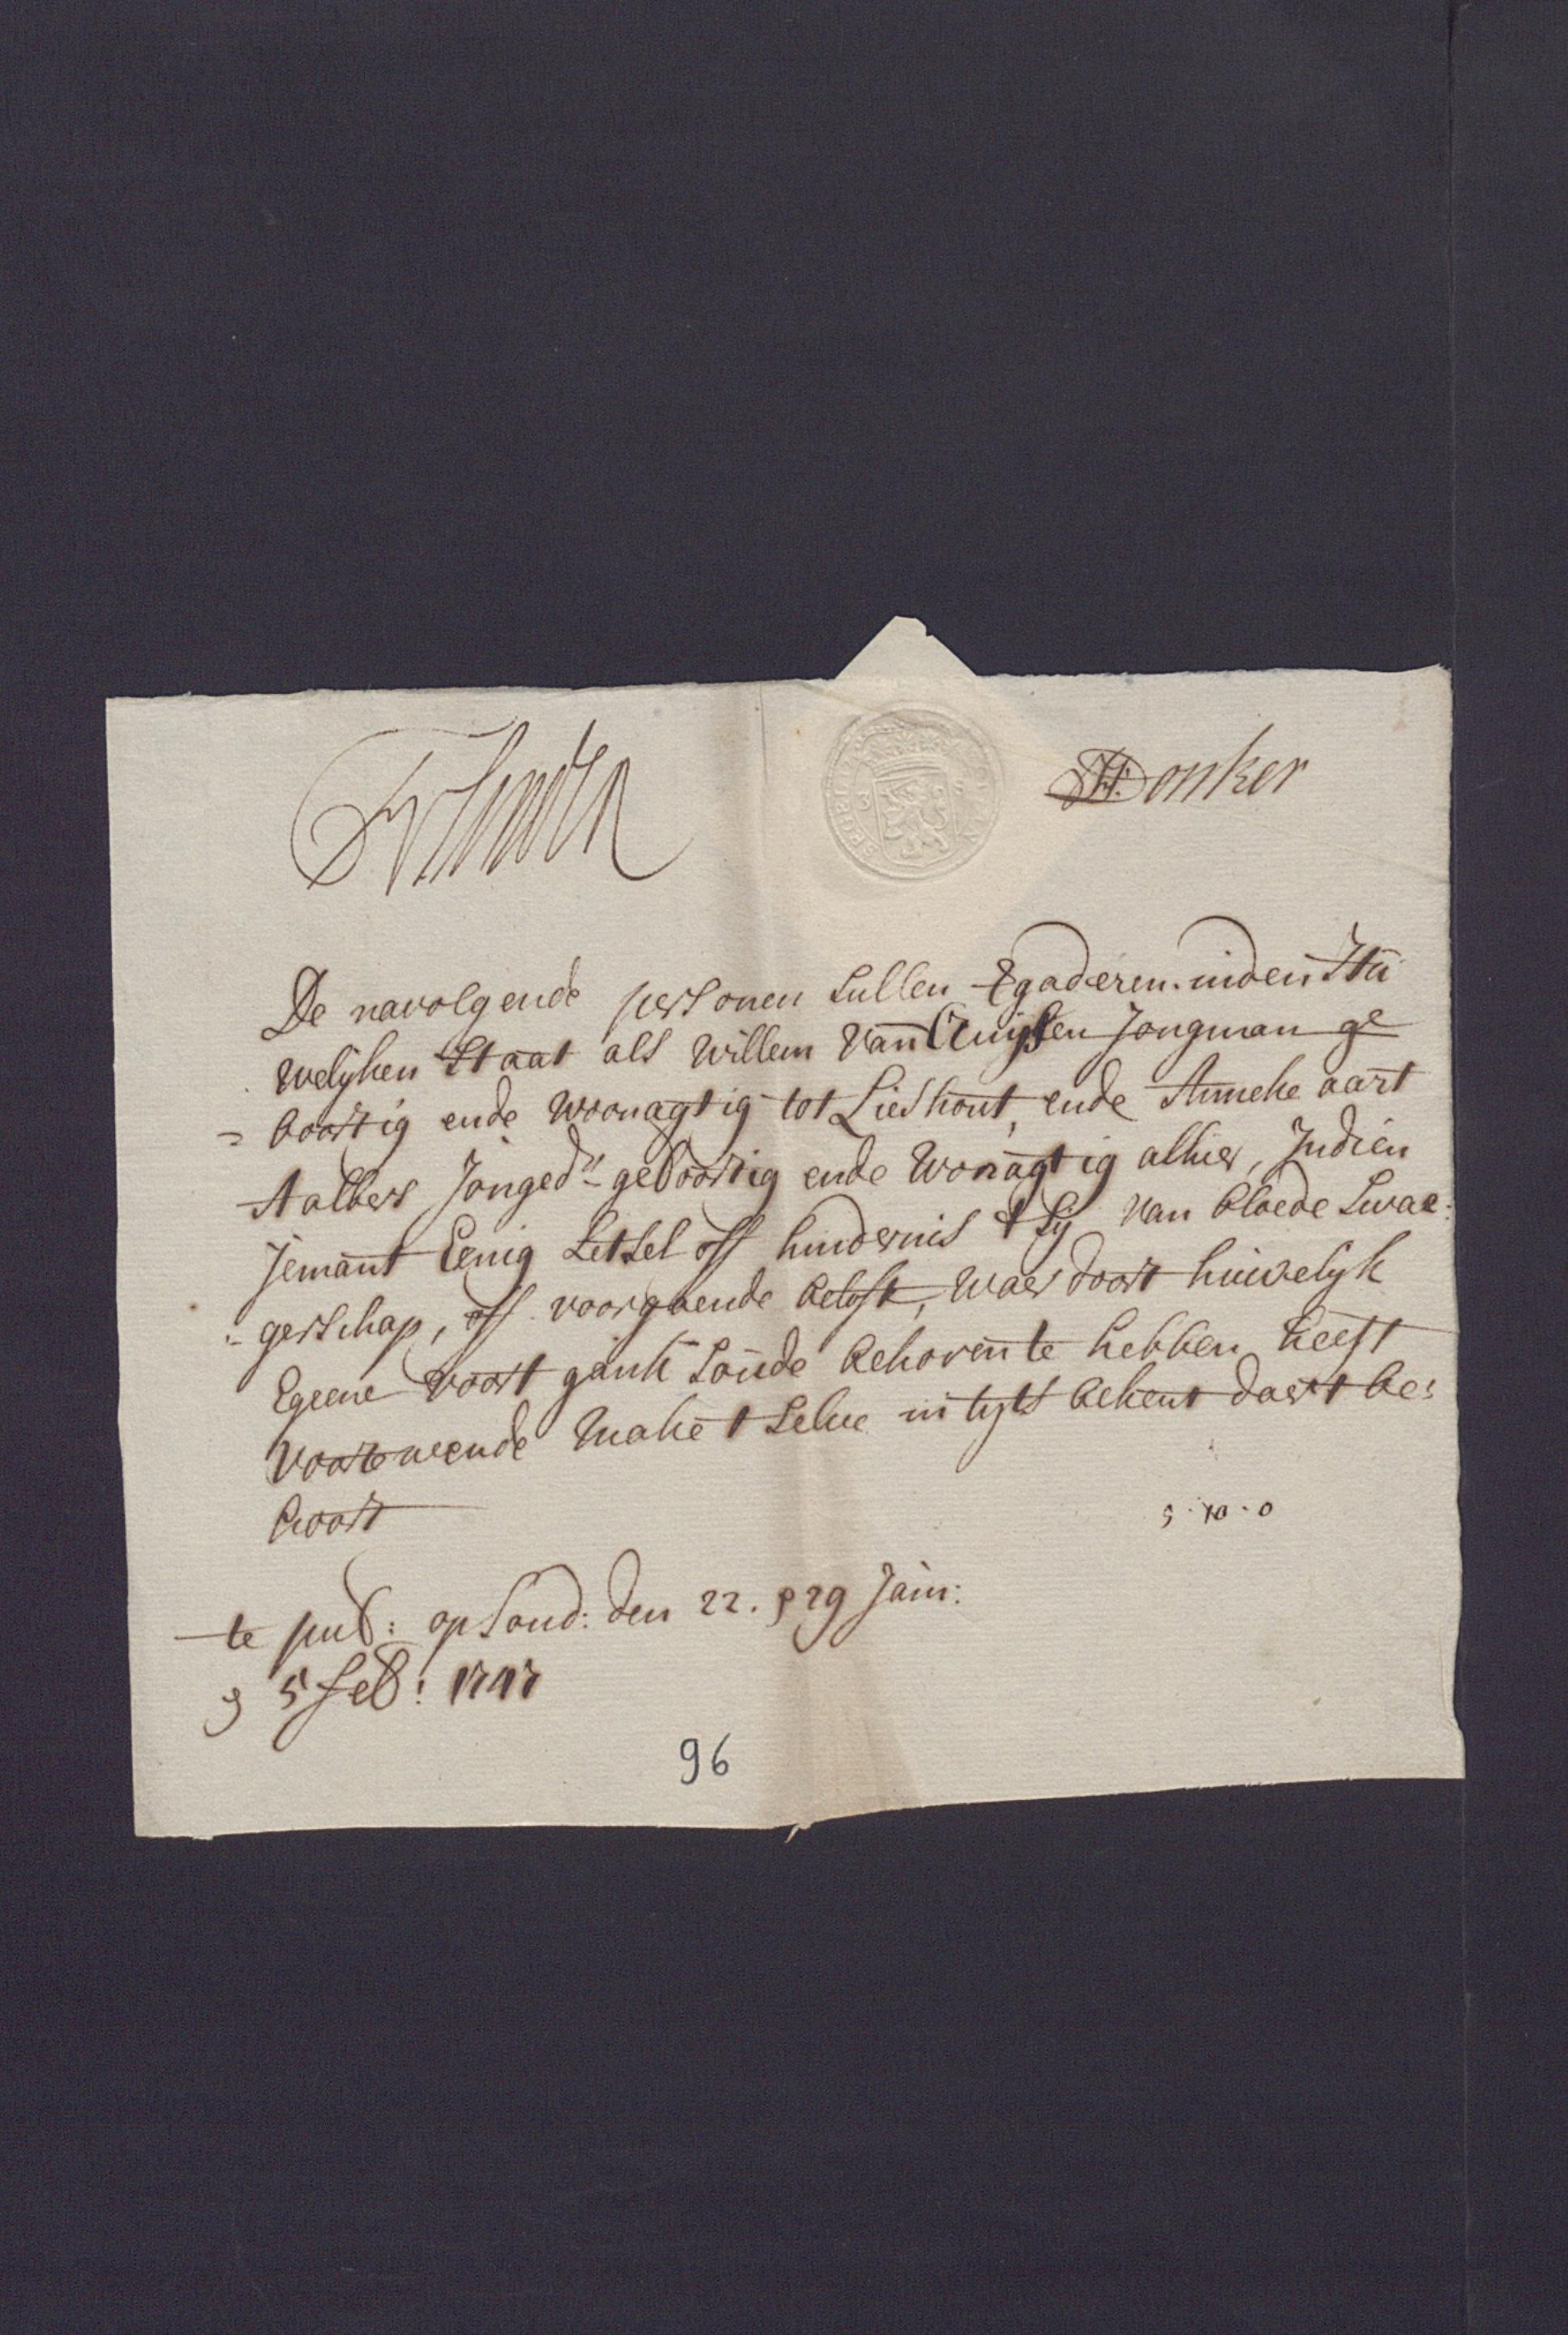 HDonker
De navolgende persoonen sullen tgaderen inden Hu
welijken Staat als Willem van Cruijssen Jongman ge
= boortig ende woonagtig tot Lieshout, ende Anneke aart
Aalbers Jonged.r geboortig ende wonagtig alhier, Indien
Jemant Eenig Letsel off hindernis t sij van bloede Swae:
:gerschap, off voorgaende beloft, waer door t huwelijk
Egeene voort gank soude behoren te hebben heeft
voortewende make t selve in tyts bekent daer t be:
hoort
5 . 10 . 0
te pub: op Sond: den 22. & 29 Jan:
& 5 feb: 1747
96